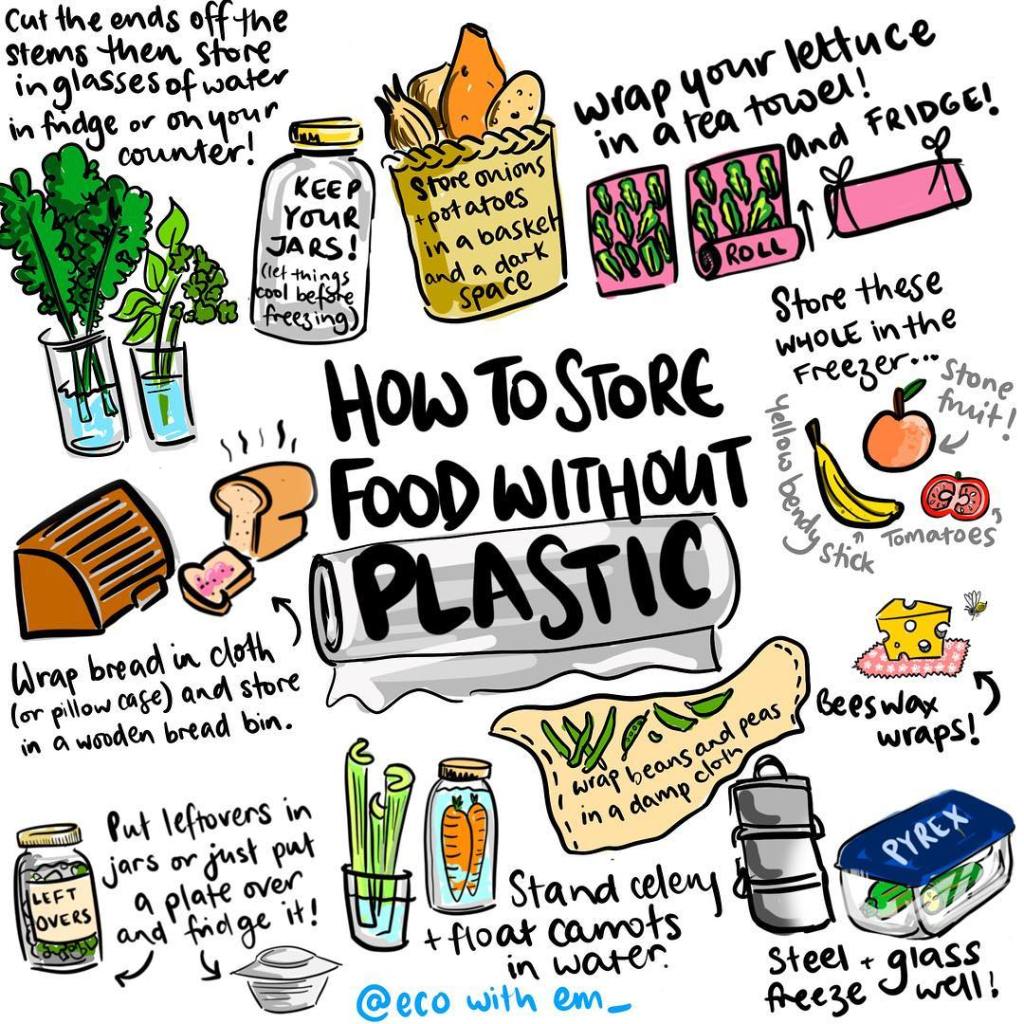 Cut the ends off the
stems then store
in glasses of water
in fridge or on your
counter!
KEEP
YOUR
JARS!
(let things
cool before
freezing)
Store onions
+ potatoes
in a basket
and a dark
space
wrap your lettuce
in a tea towel!
and FRIDGE!
ROLL
Store these
WHOLE in the
Freezer...
Stone
fruit!
Yellow bendy
stick
Tomatoes
HOW TO STORE
FOOD WITHOUT
PLASTIC
Wrap bread in cloth
(or pillow case) and store
in a wooden bread bin.
Beeswax
wraps!
wrap beans and peas
in a damp cloth
Put leftovers in
jars or just put
a plate over
and fridge it!
LEFT
OVERS
Stand celery
+ float carrots
in water.
PYREX
Steel + glass
freeze well!
@eco with em_